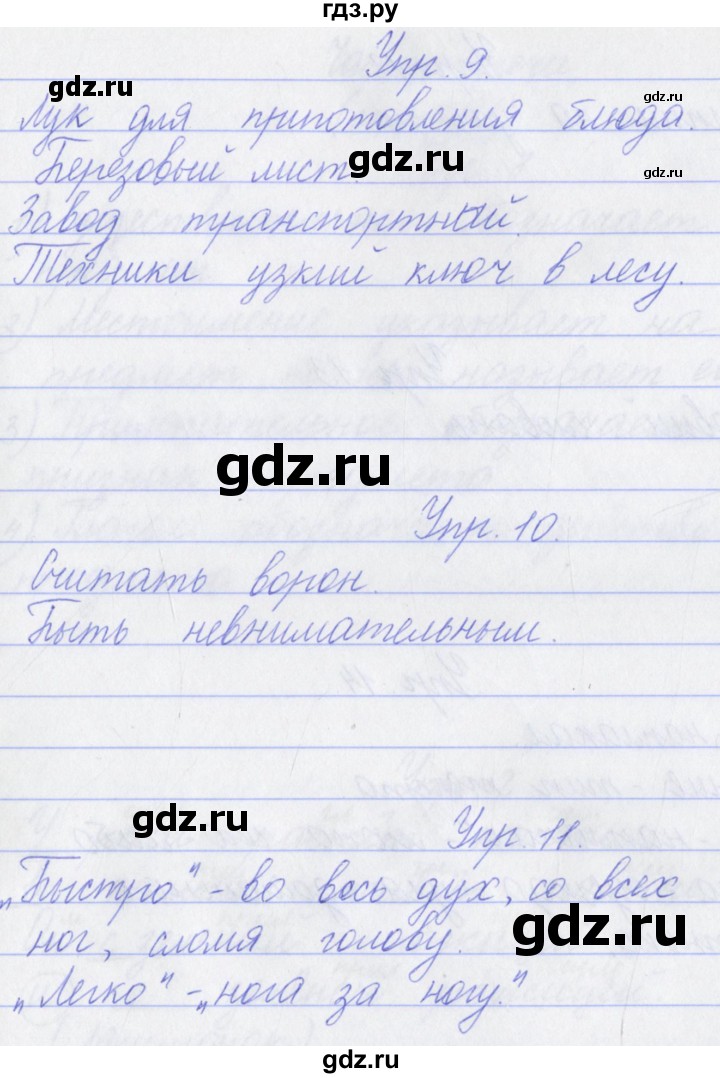 гдз.ру
Упр. 9.
gdz.ru
gdz.ru
Лук для приготовления блюда.
Березовый лист.
gdz.ru
gdz.ru
Завод транспортный
Техники узкий ключ в лесу.
gdz.ru
Упр. 10.
Считать ворон.
Быть невнимательным.
gdz.ru
Упр. 11.
„Быстро" - во весь дух, со всех
gdz.ru
ног, сломя голову.
„Легко" - „нога за ногу."
gdz.ru